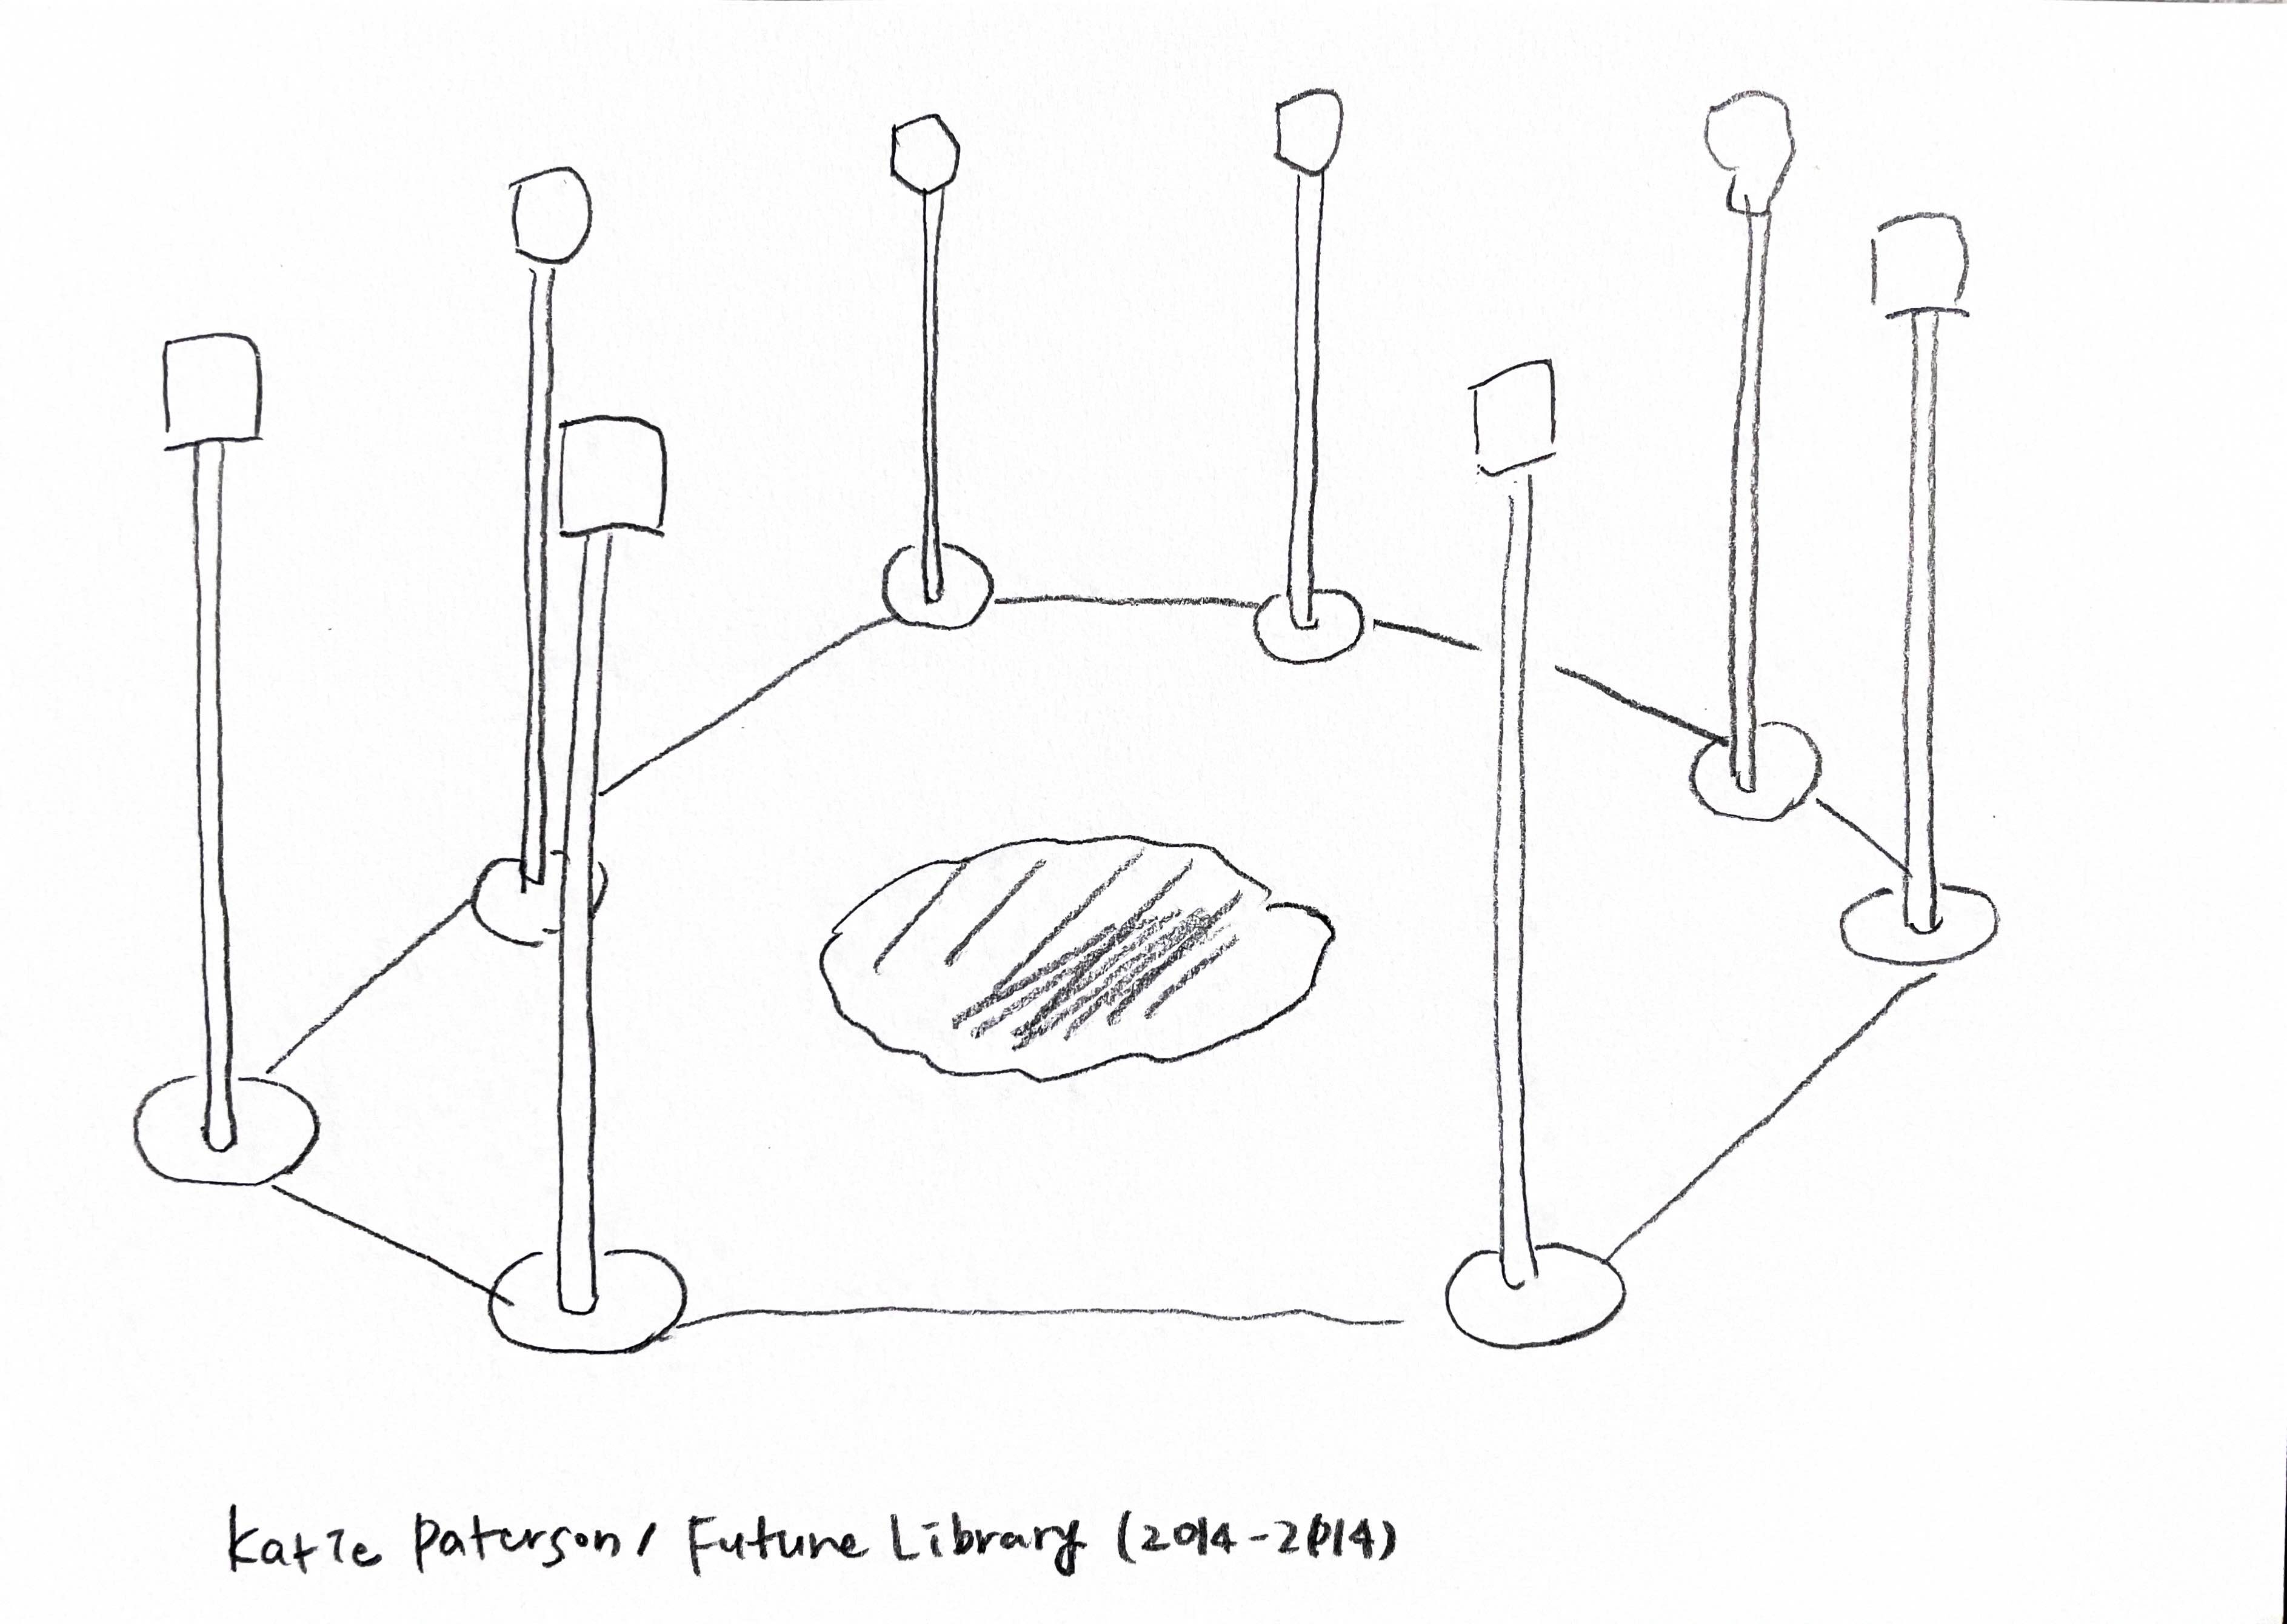 Katie Paterson / Future Library (2014-2014)